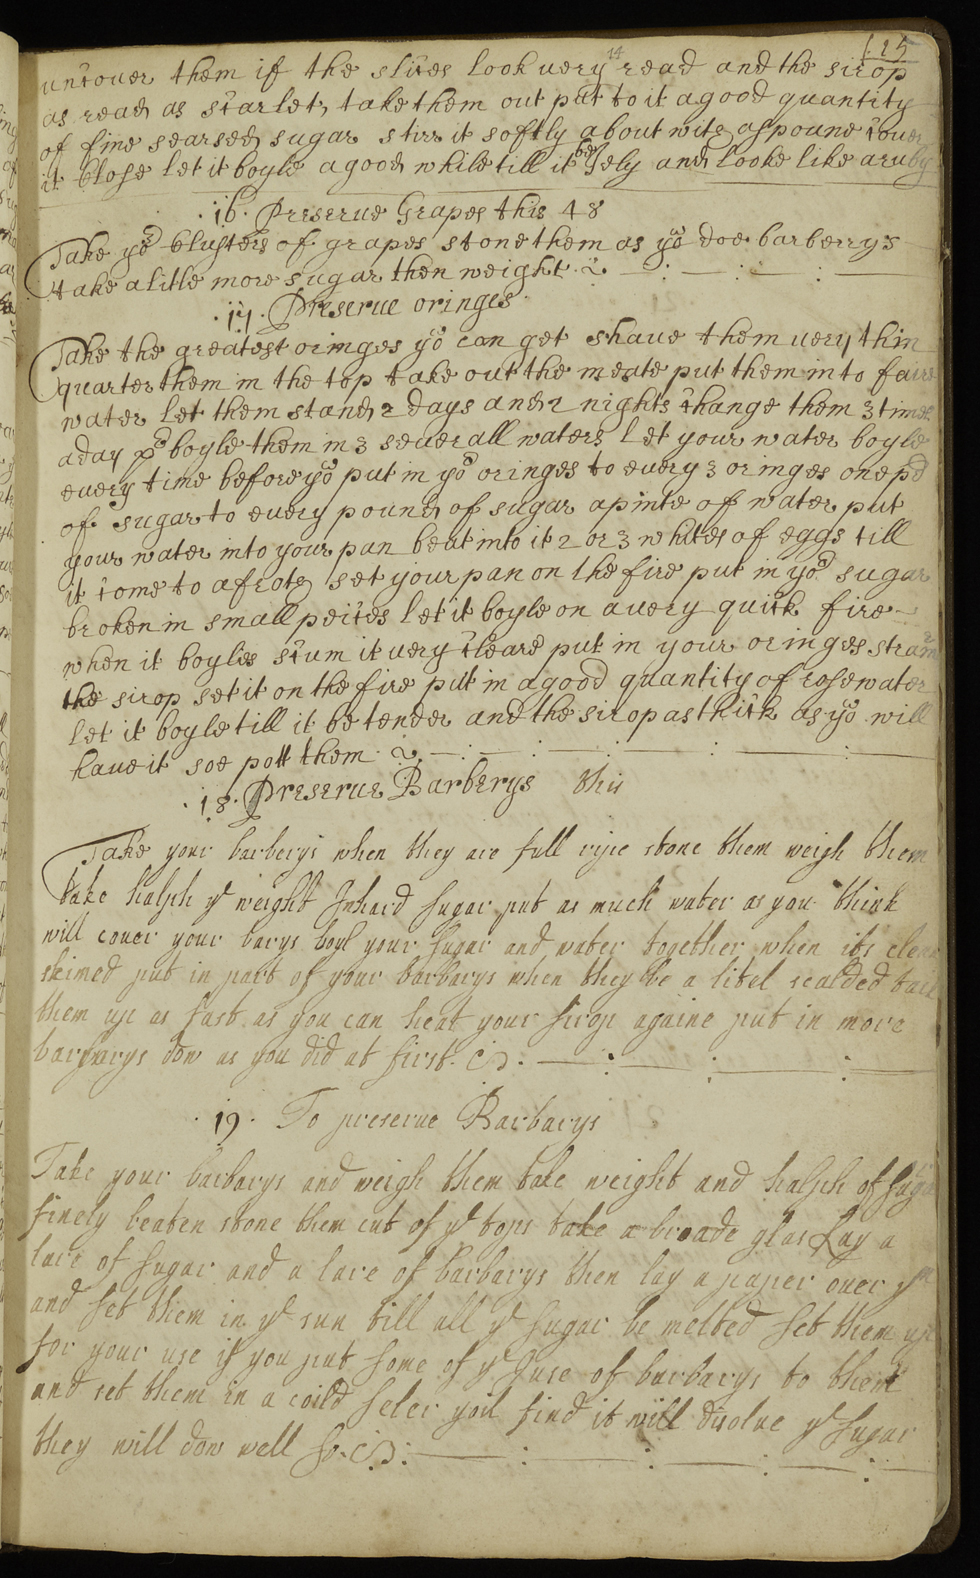 125
14
uncover them if the slices look very read and the sirop
as read as scarlet, take them out put to it a good quantity
of fine searsed sugar stirr it softly about with a spoune cover
it close let it boyle a good while till it be Jely and looke like a ruby
.16. Preserve Grapes this 48
Take ye clusters of grapes stone them as yo doe barberrys
take a litle more sugar then weight
.17. Preserve oringes.
Take the greatest oringes yo can get shave them very thin
quarter them in the top take out the meate put them into faire
water let them stand 2 days and 2 nights change them 3 times
a day boyle them in 3 severall waters let your water boyle
every time before yo put in yor oringes to every 3 oringes one pd
of sugar to every pound of sugar a pinte of water put
your water into your pan beat into it 2 or 3 whites of eggs till
it come to a froth set your pan on the fire put in yor sugar
broken in small peices let it boyle on a very quick fire
when it boyles scum it very cleare put in your oringes strain
the sirop set it on the fire put in a good quantity of rosewater
let it boyle till it be tender and the sirop as thick as yo will
have it soe pott them
.18. Preserve Barberys this
Take your barberys when they are full ripe stone them weigh them
take halph ye weight In hard sugar put as much water as you think
will cover your barys boyl your sugar and water together when its clear
skimed put in part of your barbarys when they be a litel scalded take
them up as fast as you can heat your sirop againe put in more
barbarys dow as you did at first.
.19. To preserve Barbarys
Take your barbarys and weigh them take weight and halph of sugar
finely beaten stone them cut of ye tops take a broade glas Lay a
lare of sugar and a lare of barbarys then lay a paper over ym
and set them in ye sun till all ye sugar be melted set them up
for your use if you put some of ye Juse of barbarys to them
and set them in a coild seler youl find it will disolve ye sugar
they will dow well so.